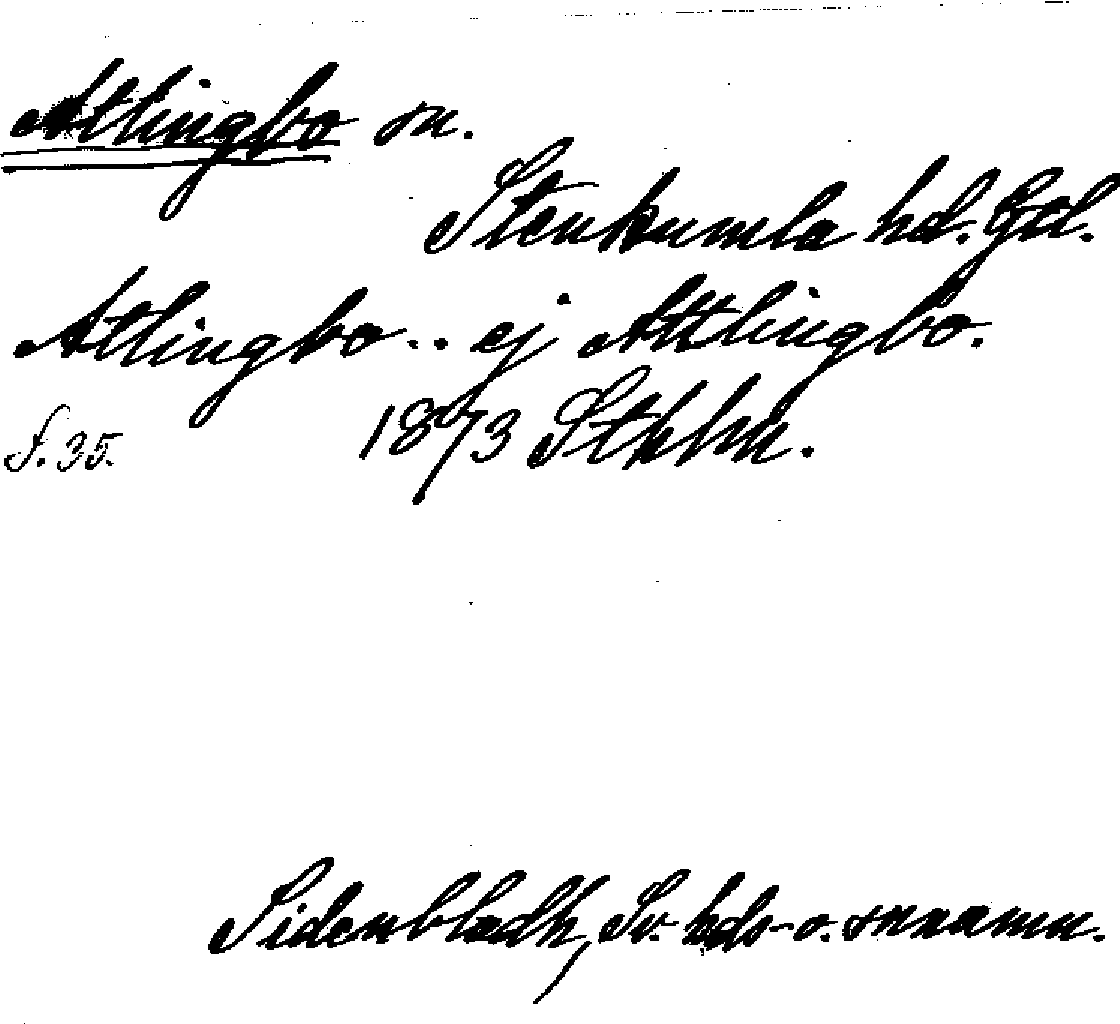 Atlingbo sn.
Stenkumla hd. Gtl.
Atlingbo .. ej Attlingbo.
S. 35. 1873 Sthlm.
Sidenbladh, Sv. hds- o. snnamn.